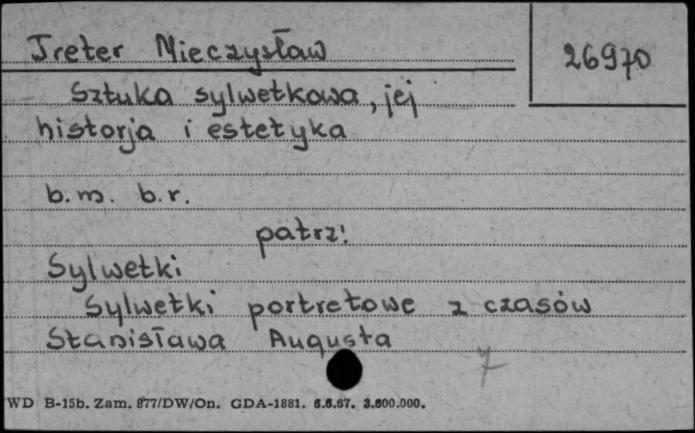 Treter Mieczysław
26970
Sztuka sylwetkowa, jej
historja i estetyka
b.m. b.r.
patrz:
Sylwetki
Sylwetki portretowe z czasów
Stanisława Augusta
7
WD B-15b. Zam. 877/DW/On. GDA-1881. 6.6.67. 3.600.000.